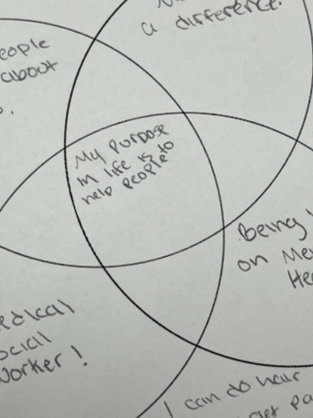 a difference.
eople
about
My Purpose
in life is to
help people
Being
on Me
He
edical
ocial
Worker!
I can do hair
get pa